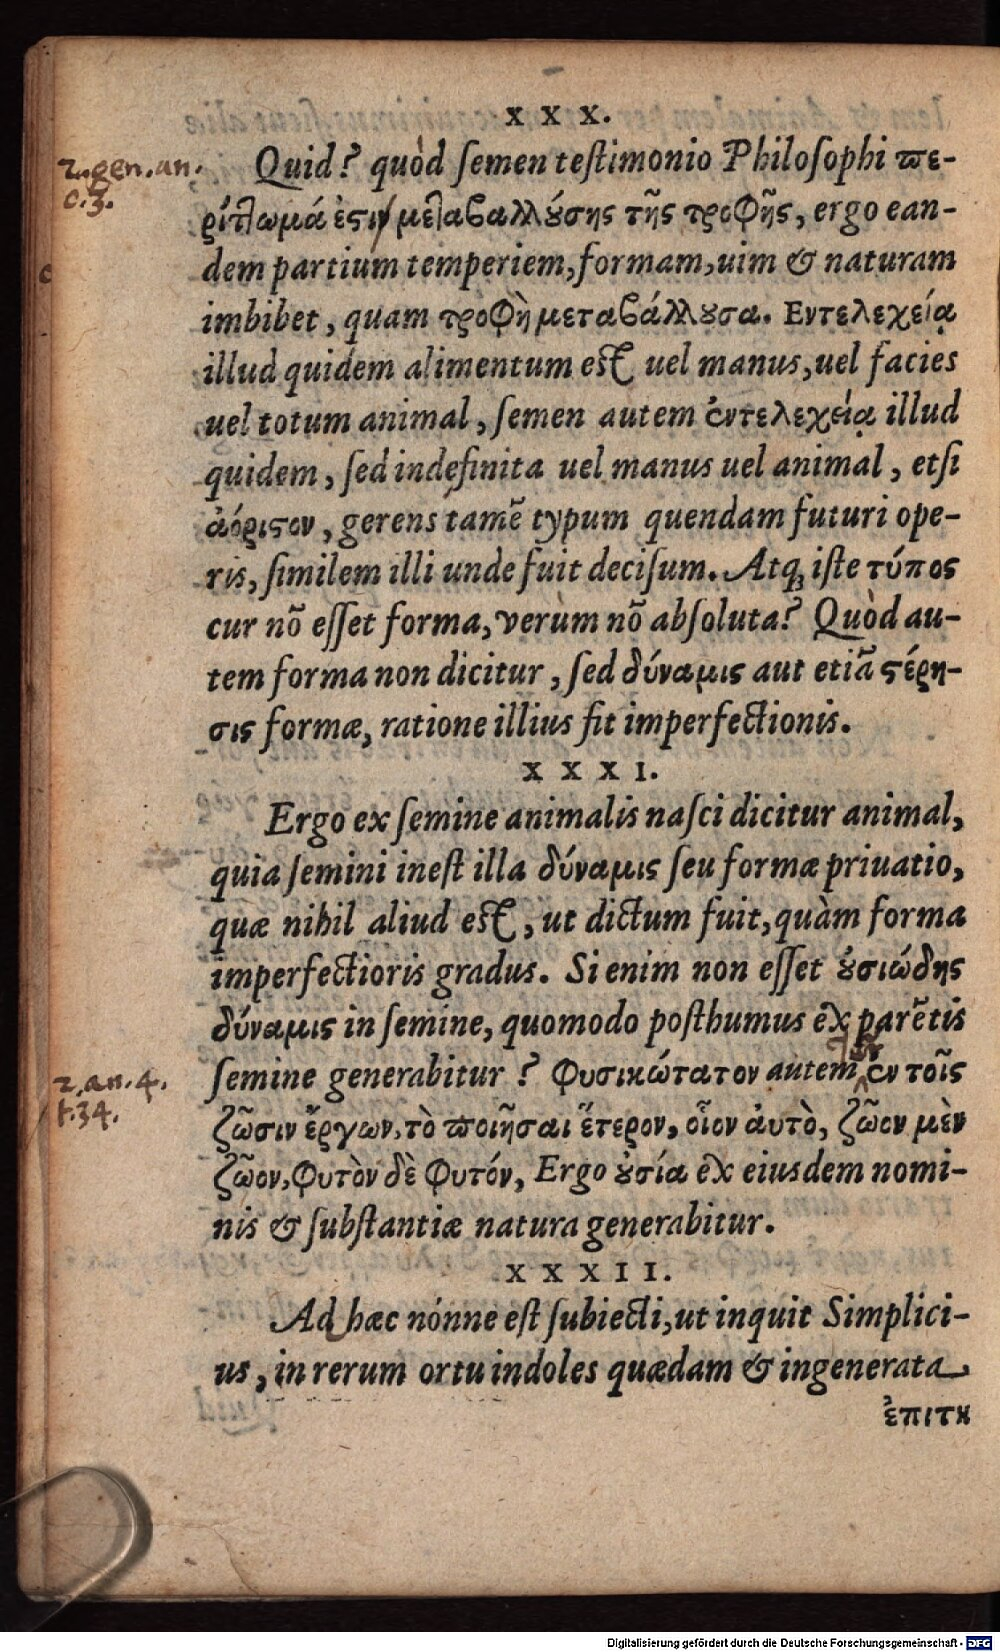 XXX.
2. gen. an.
c. 3.
Quid? quòd semen testimonio Philosophi πε-
ρίτ]ωμά ἐςιν με]αβαλλούσης τῆς τροφῆς, ergo ean-
dem partium temperiem, formam, uim & naturam
imbibet, quam τροφὴ μεταβάλλουσα. Εντελεχείᾳ
illud quidem alimentum est uel manus, uel facies
uel totum animal, semen autem ἐντελεχείᾳ illud
quidem, sed indefinita uel manus uel animal, etsi
ἀόριςον, gerens tamē typum quendam futuri ope-
ris, similem illi unde fuit decisum. Atq; iste τύπος
cur nō esset forma, verùm nō absoluta? Quòd au-
tem forma non dicitur, sed δύναμις aut etiā ςέρη-
σις formæ, ratione illius fit imperfectionis.
XXXI.
Ergo ex semine animalis nasci dicitur animal,
quia semini inest illa δύναμις seu formæ priuatio,
quæ nihil aliud est, ut dictum fuit, quàm forma
imperfectioris gradus. Si enim non esset ȣσιώδης
δύναμις in semine, quomodo posthumus ex parētis
semine generabitur? Φυσικώτατον autem ἐν τοῖς
2. an. 4.
t. 34.
ζῶσιν ἔργων, τὸ ποιῆσαι ἕτερον, οἷον ἀυτὸ, ζῶον μὲν
ζῶον, φυτὸν δὲ φυτόν, Ergo ȣσία ex eiusdem nomi-
nis & substantiæ natura generabitur.
XXXII.
Ad hæc nónne est subiecti, ut inquit Simplici-
us, in rerum ortu indoles quædam & ingenerata
ἐπιτη
Digitalisierung gefördert durch die Deutsche Forschungsgemeinschaft - DFG